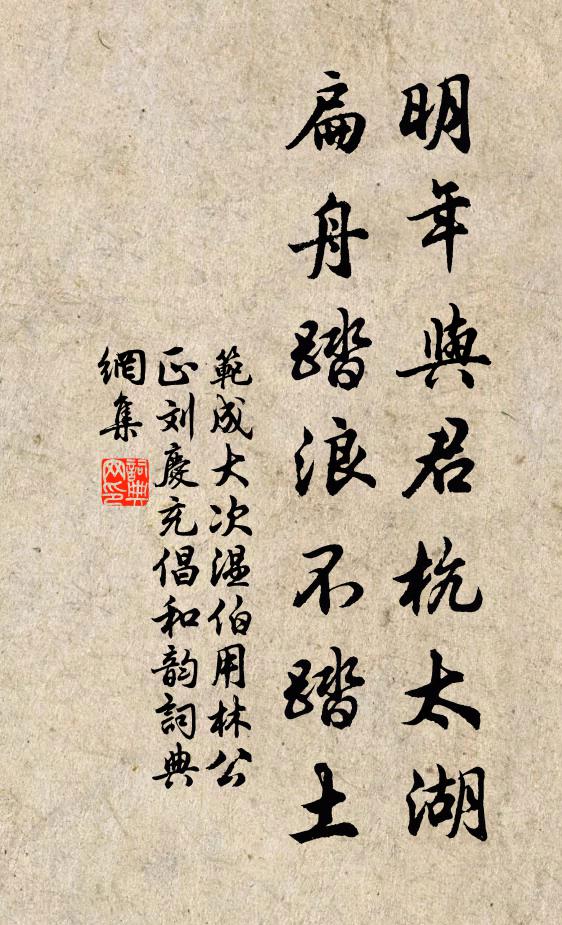 明年與君杭太湖
扁舟踏浪不踏土
範成大次溫伯用林公
正刘慶充倡和韵詞典
網集
詞典網印